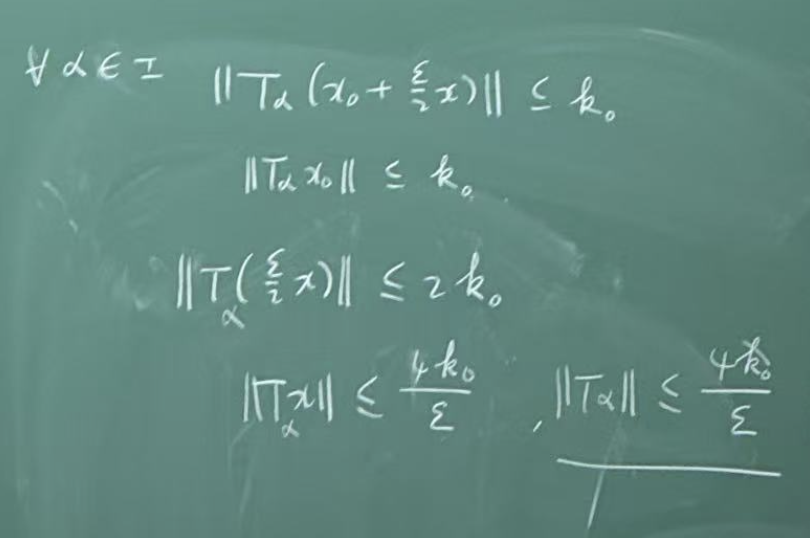 ∀ α ∈ I ‖Tα (x₀ + ε/2 x)‖ ≤ k₀
‖Tα x₀‖ ≤ k₀
‖Tα(ε/2 x)‖ ≤ 2 k₀
‖Tα x‖ ≤ 4 k₀/ε , ‖Tα‖ ≤ 4 k₀/ε